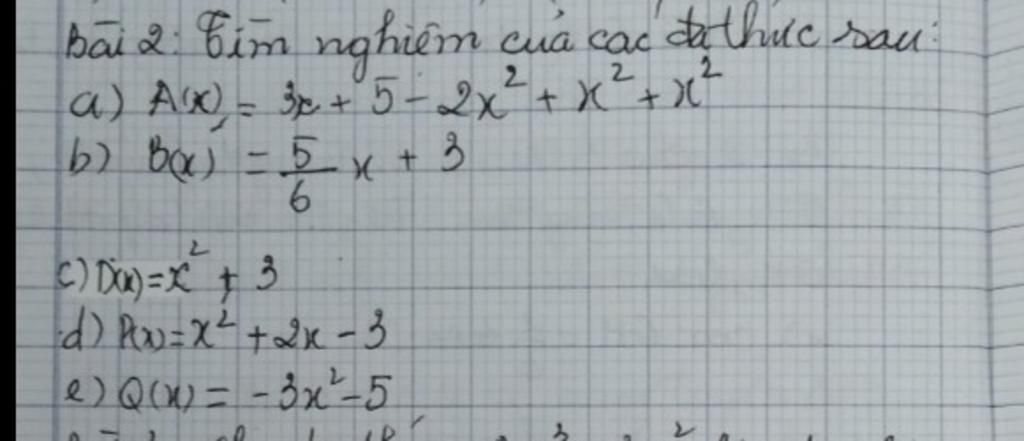 Bài 2: Tìm nghiệm của các đa thức sau:
a) A(x) = 3x + 5 - 2x² + x² + x²
b) B(x) = 5/6 x + 3
c) D(x) = x² + 3
d) P(x) = x² + 2x - 3
e) Q(x) = -3x² - 5